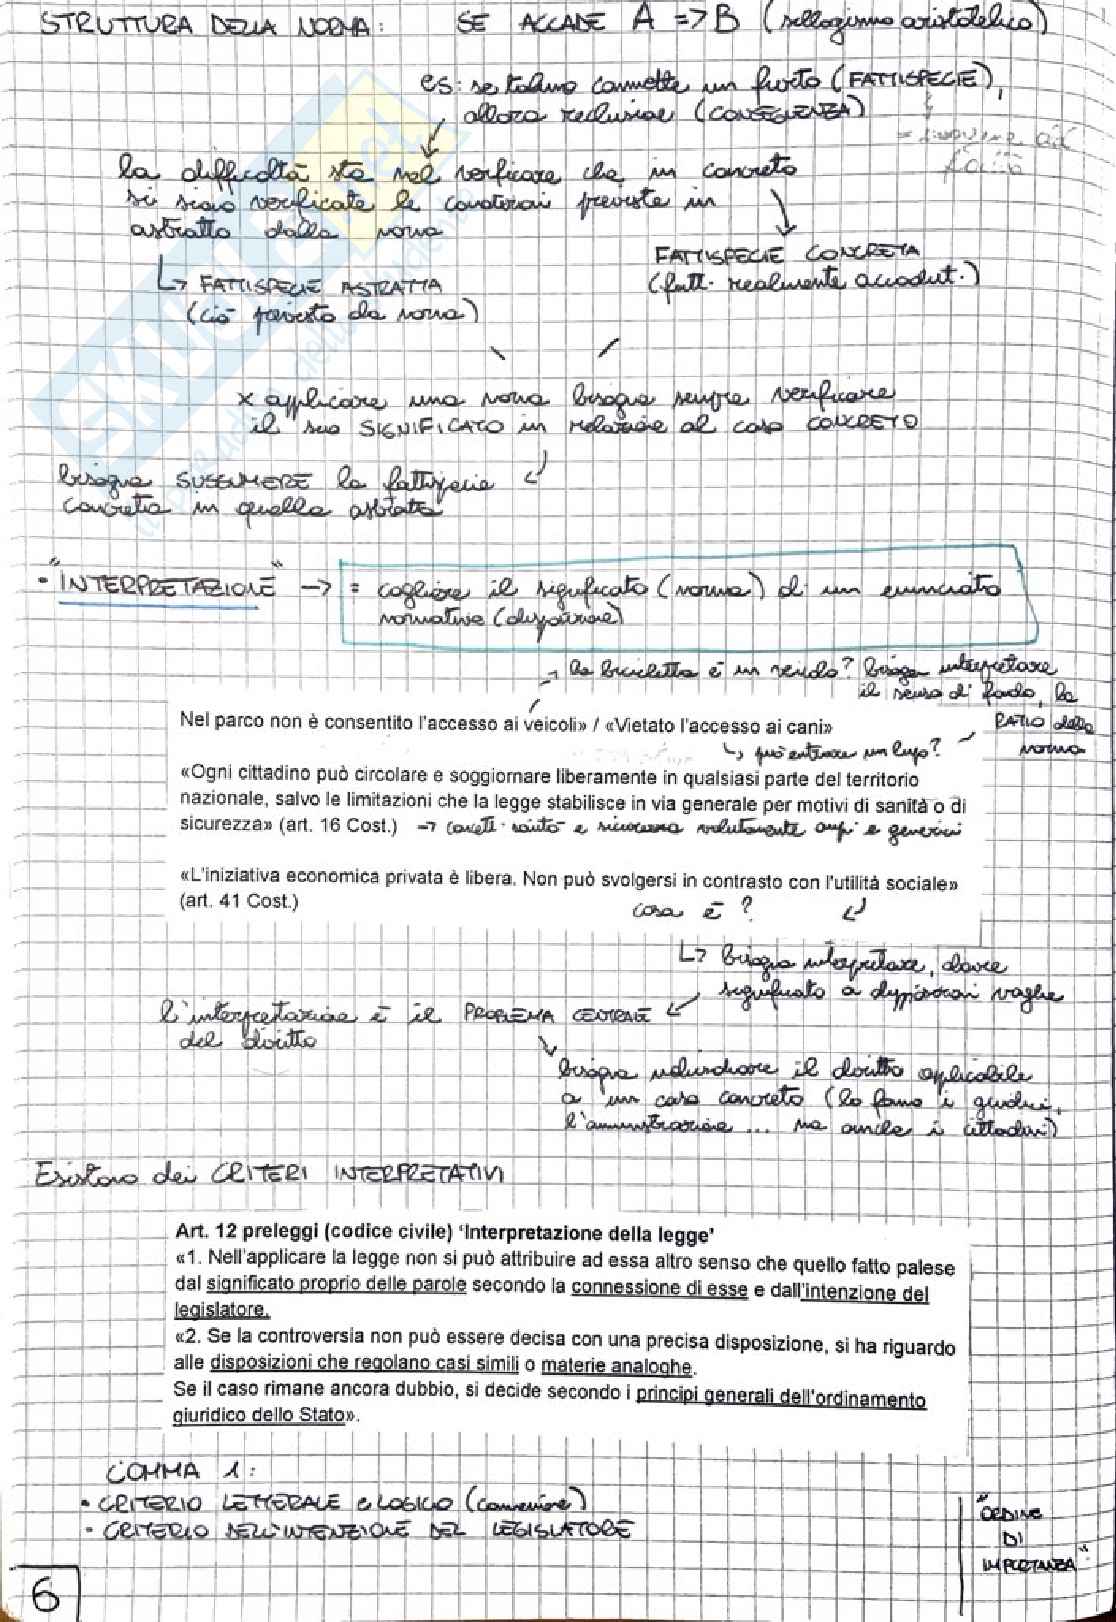 STRUTTURA DELLA NORMA: SE ACCADE A => B (sillogismo aristotelico)
es: se taluno commette un furto (FATTISPECIE),
allora reclusione (CONSEGUENZA)
la difficoltà sta nel verificare che in concreto
si siano verificate le condizioni previste in
astratto dalla norma
FATTISPECIE CONCRETA
(fatti realmente accaduti)
↳ FATTISPECIE ASTRATTA
(ciò previsto da norma)
x applicare una norma bisogna sempre verificare
il suo SIGNIFICATO in relazione al caso CONCRETO
bisogna SUSSUMERE la fattispecie
concreta in quella astratta
• "INTERPRETAZIONE" -> = cogliere il significato (norma) di un enunciato
normativo (disposizione)
-> la bicicletta è un veicolo? bisogna interpretare
il senso di fondo, la
RATIO della
norma
Nel parco non è consentito l'accesso ai veicoli» / «Vietato l'accesso ai cani»
↳ può entrare un lupo?
«Ogni cittadino può circolare e soggiornare liberamente in qualsiasi parte del territorio
nazionale, salvo le limitazioni che la legge stabilisce in via generale per motivi di sanità o di
sicurezza» (art. 16 Cost.) -> concetti sanità e sicurezza volutamente ampi e generici
«L'iniziativa economica privata è libera. Non può svolgersi in contrasto con l'utilità sociale»
(art. 41 Cost.)
cosa è?
↳ bisogna interpretare, dare
significato a disposizioni vaghe
l'interpretazione è il PROBLEMA CENTRALE
del diritto
bisogna individuare il diritto applicabile
a un caso concreto (lo fanno i giudici,
l'amministrazione ... ma anche i cittadini)
Esistono dei CRITERI INTERPRETATIVI
Art. 12 preleggi (codice civile) 'Interpretazione della legge'
«1. Nell'applicare la legge non si può attribuire ad essa altro senso che quello fatto palese
dal significato proprio delle parole secondo la connessione di esse e dall'intenzione del
legislatore.
«2. Se la controversia non può essere decisa con una precisa disposizione, si ha riguardo
alle disposizioni che regolano casi simili o materie analoghe.
Se il caso rimane ancora dubbio, si decide secondo i principi generali dell'ordinamento
giuridico dello Stato».
COMMA 1:
• CRITERIO LETTERALE e LOGICO (connessione)
• CRITERIO DELL'INTENZIONE DEL LEGISLATORE
"ORDINE
DI
IMPORTANZA"
6